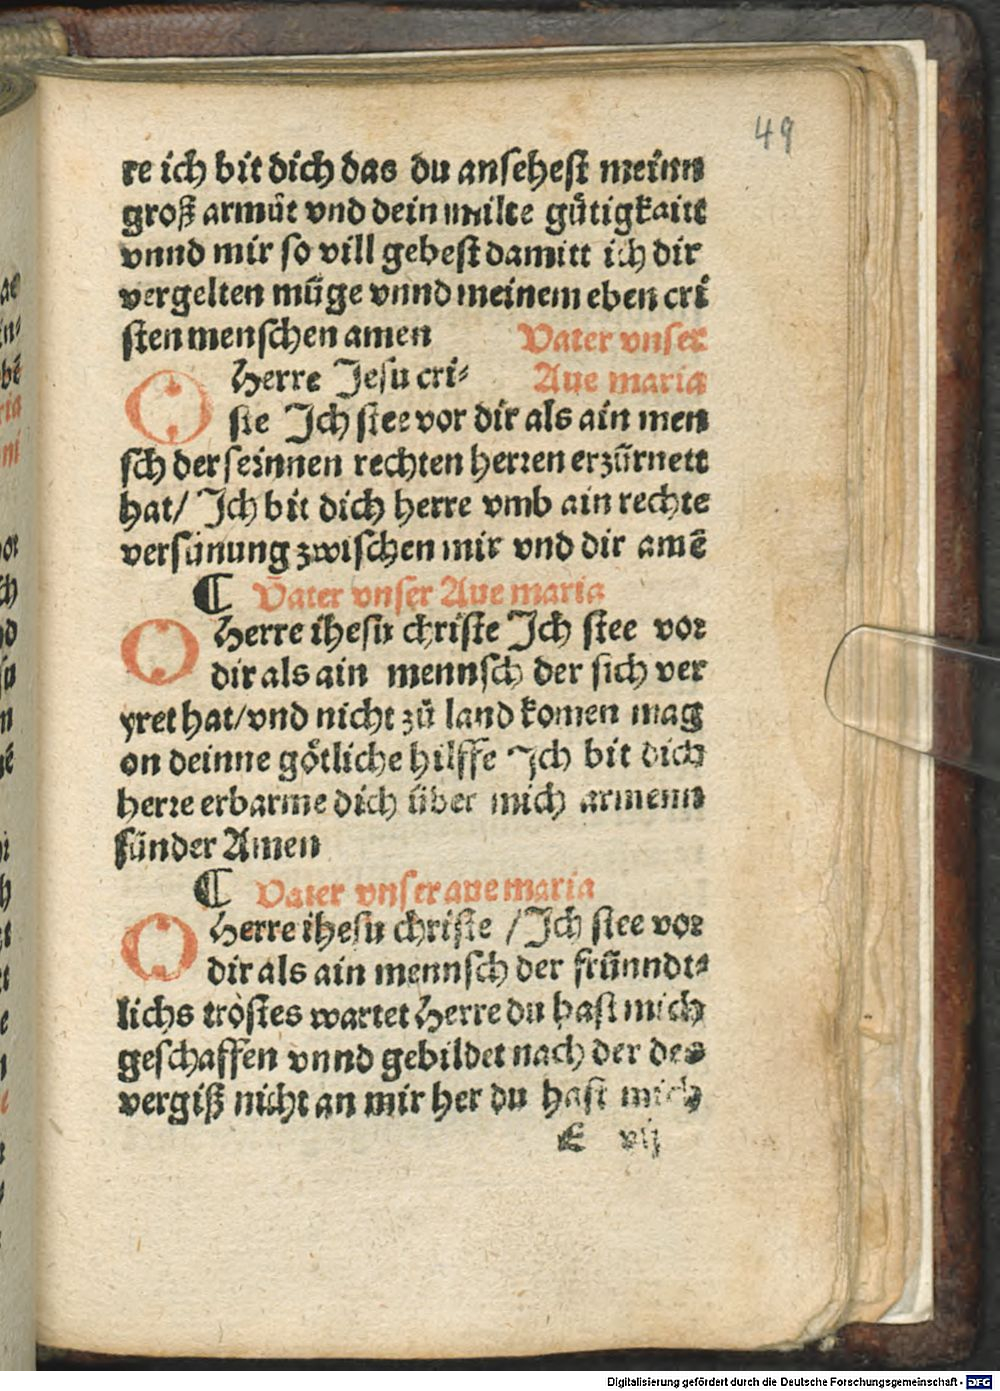 49
re ich bit dich das du ansehest meinn
groß armůt vnd dein milte gütigkaitt
vnnd mir so vill gebest damitt ich dir
vergelten müge vnnd meinem eben cri
sten menschen amen Vater vnser
Herre Jesu cri⸗ Aue maria
O ste Jch stee vor dir als ain men
sch der seinnen rechten herren erzürnett
hat/ Jch bit dich herre vmb ain rechte
versünung zwischen mir vnd dir amē
¶ Vater vnser Aue maria
O Herre ihesu christe Jch stee vor
dir als ain mennsch der sich ver
yret hat/vnd nicht zů land komen mag
on deinne götliche hilffe Jch bit dich
herre erbarme dich über mich armenn
sünder Amen
¶ Vater vnser aue maria
O Herre ihesu christe /Jch stee vor
dir als ain mennsch der frünndt⸗
lichs trostes wartet Herre du hast mich
geschaffen vnnd gebildet nach der des
vergiß nicht an mir her du hast mich
E vij
Digitalisierung gefördert durch die Deutsche Forschungsgemeinschaft - DFG